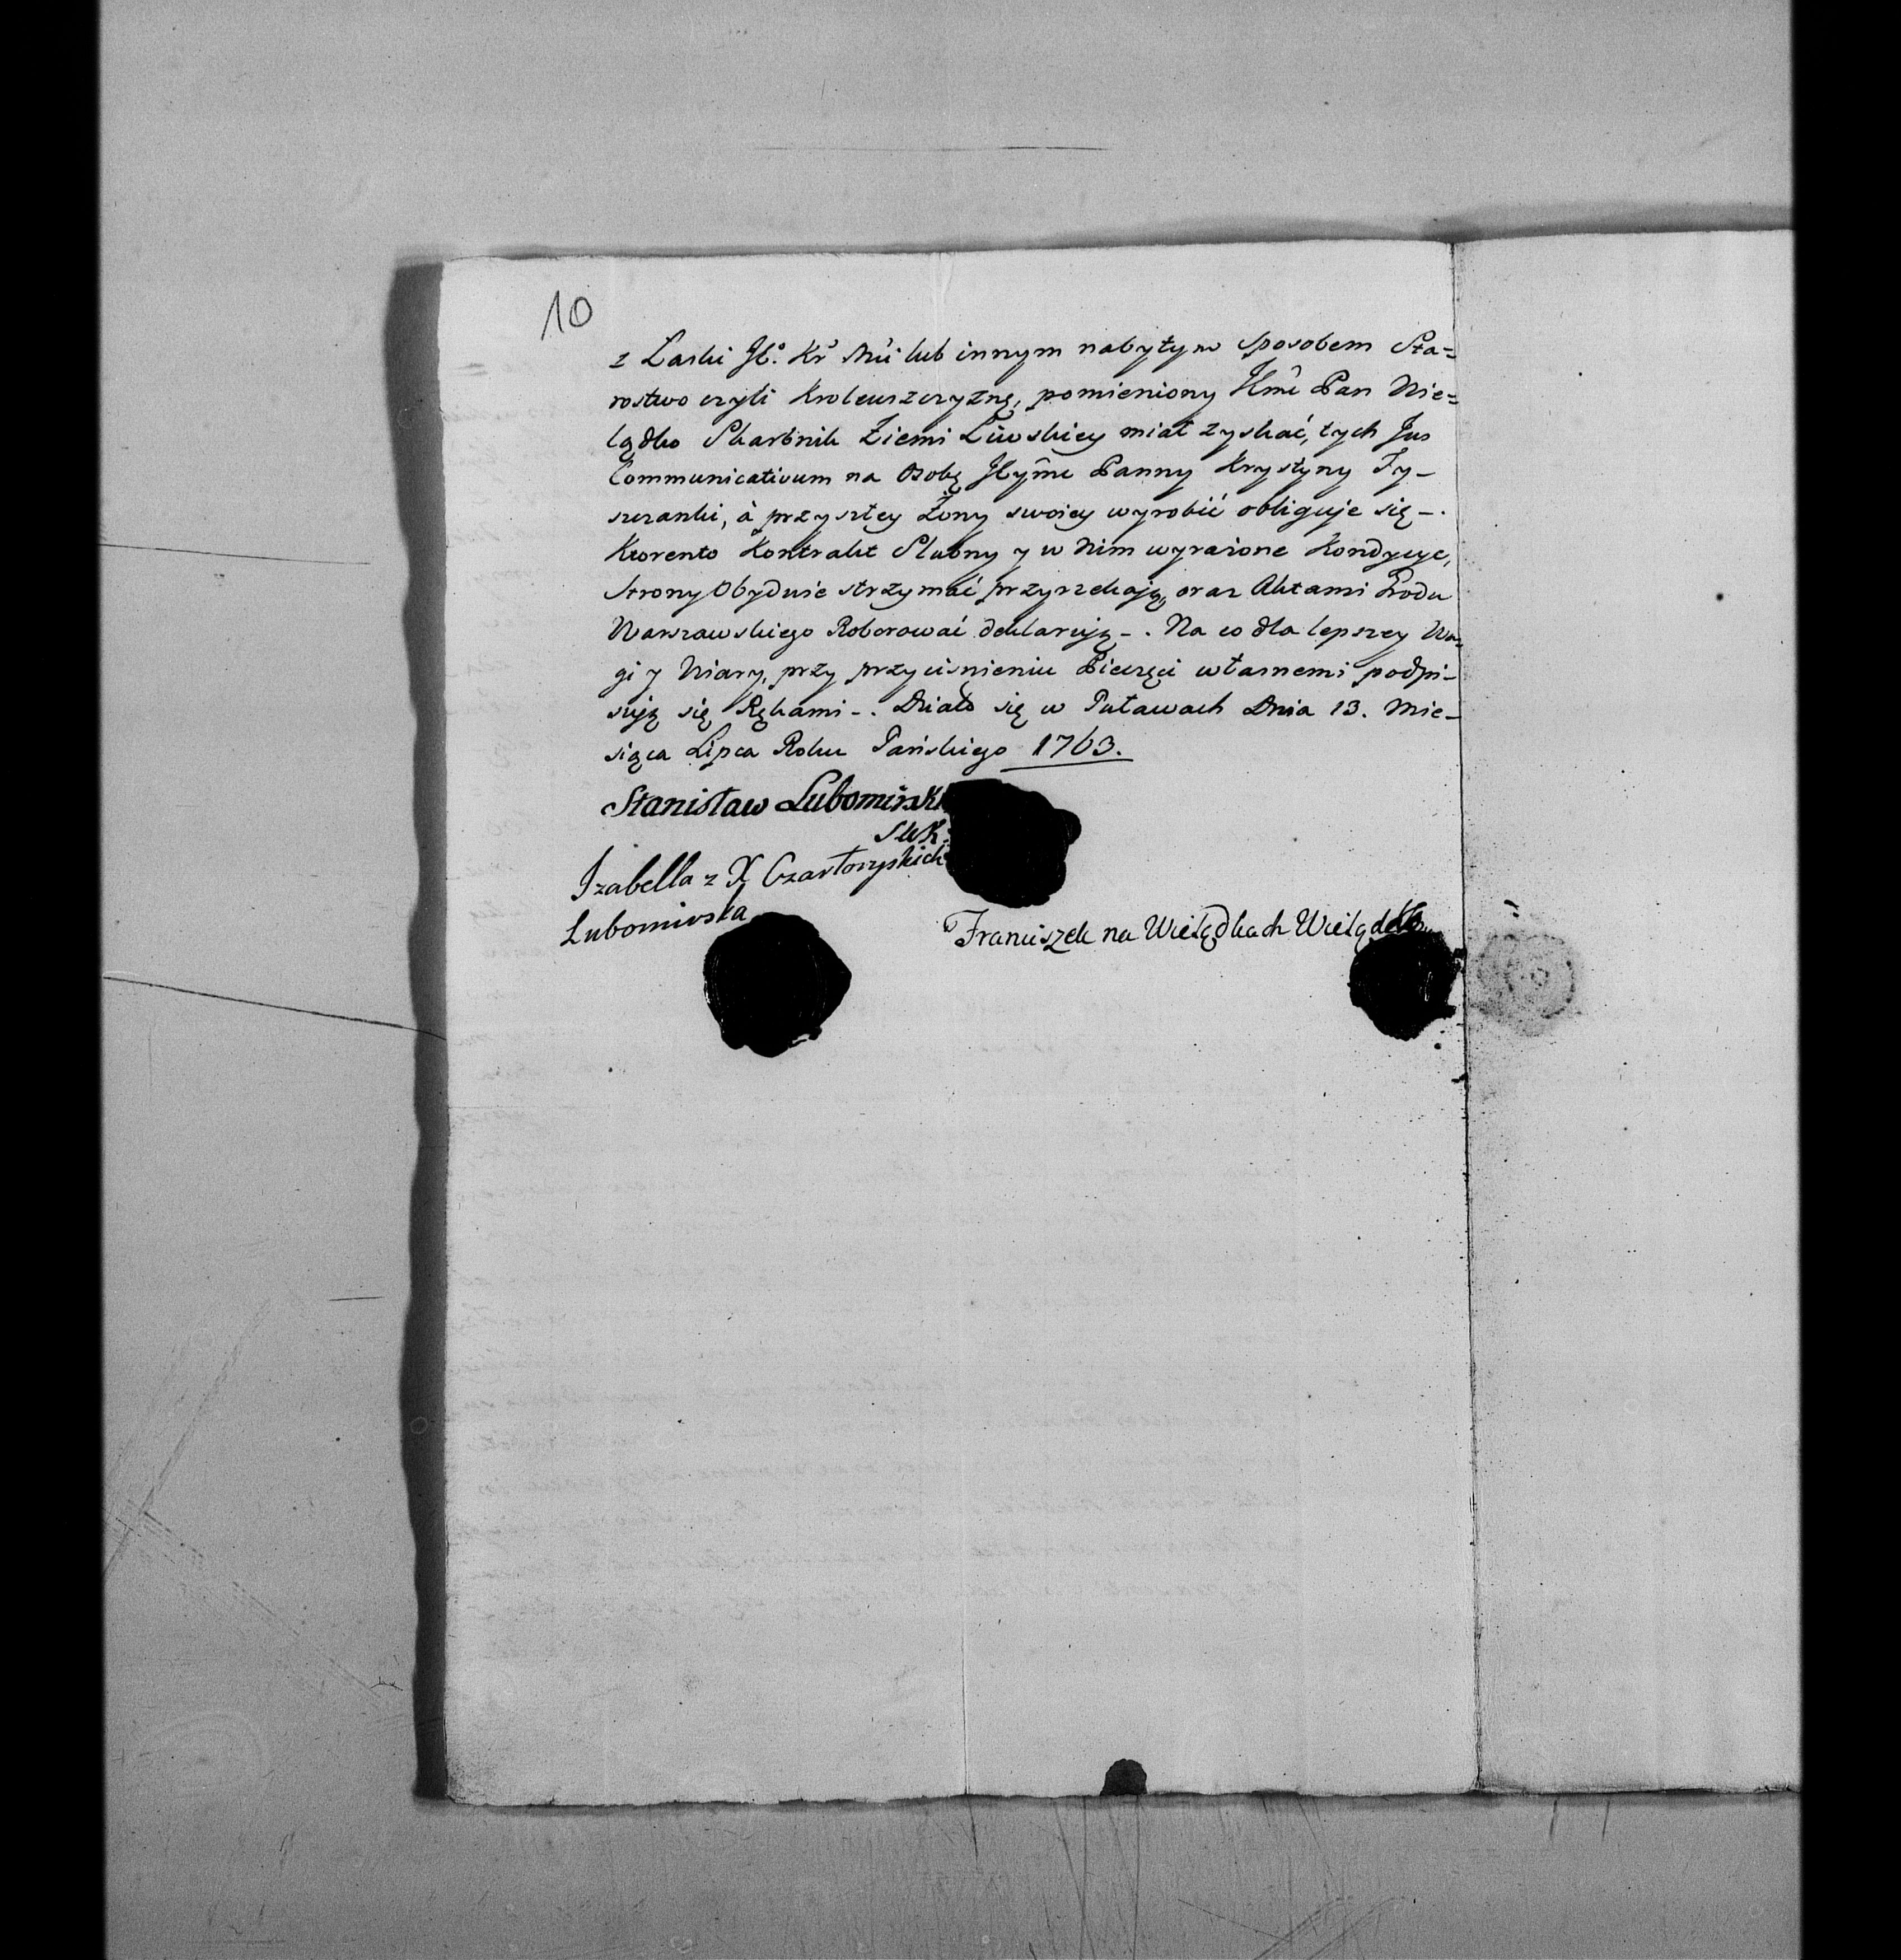 10
z Łaski JK.º Kr Mći lub innym nabytym sposobem Sta=
rostwo czyli Krolewszczyznę, pomieniony JKmć Pan Wie=
lądko Skarbnik Ziemi Liwskiey miał zyskać, tych Jus
Communicativum na Osobę JKymć Panny Krystyny Ty-
szranki, à przyszłey Żony swoiey wyrobić obliguje się -.
Ktorento Kontrakt Slubny y w Nim wyrażone Kondycye,
Strony Obydwie strzymać przyrzekają, oraz Aktami Grodu
Warszawskiego Roborować deklarują -. Na co dla lepszey Wa-
gi y Wiary, przy przyciśnieniu Pieczęci własnemi podpi-
sują się Rękami -. Działo się w Puławach Dnia 13. Mie-
siąca Lipca Roku Pańskiego 1763.
Stanisław Lubomirski
SWK
Izabella z X Czartoryskich
Lubomirska
Franciszek na Wielądkach Wielądko